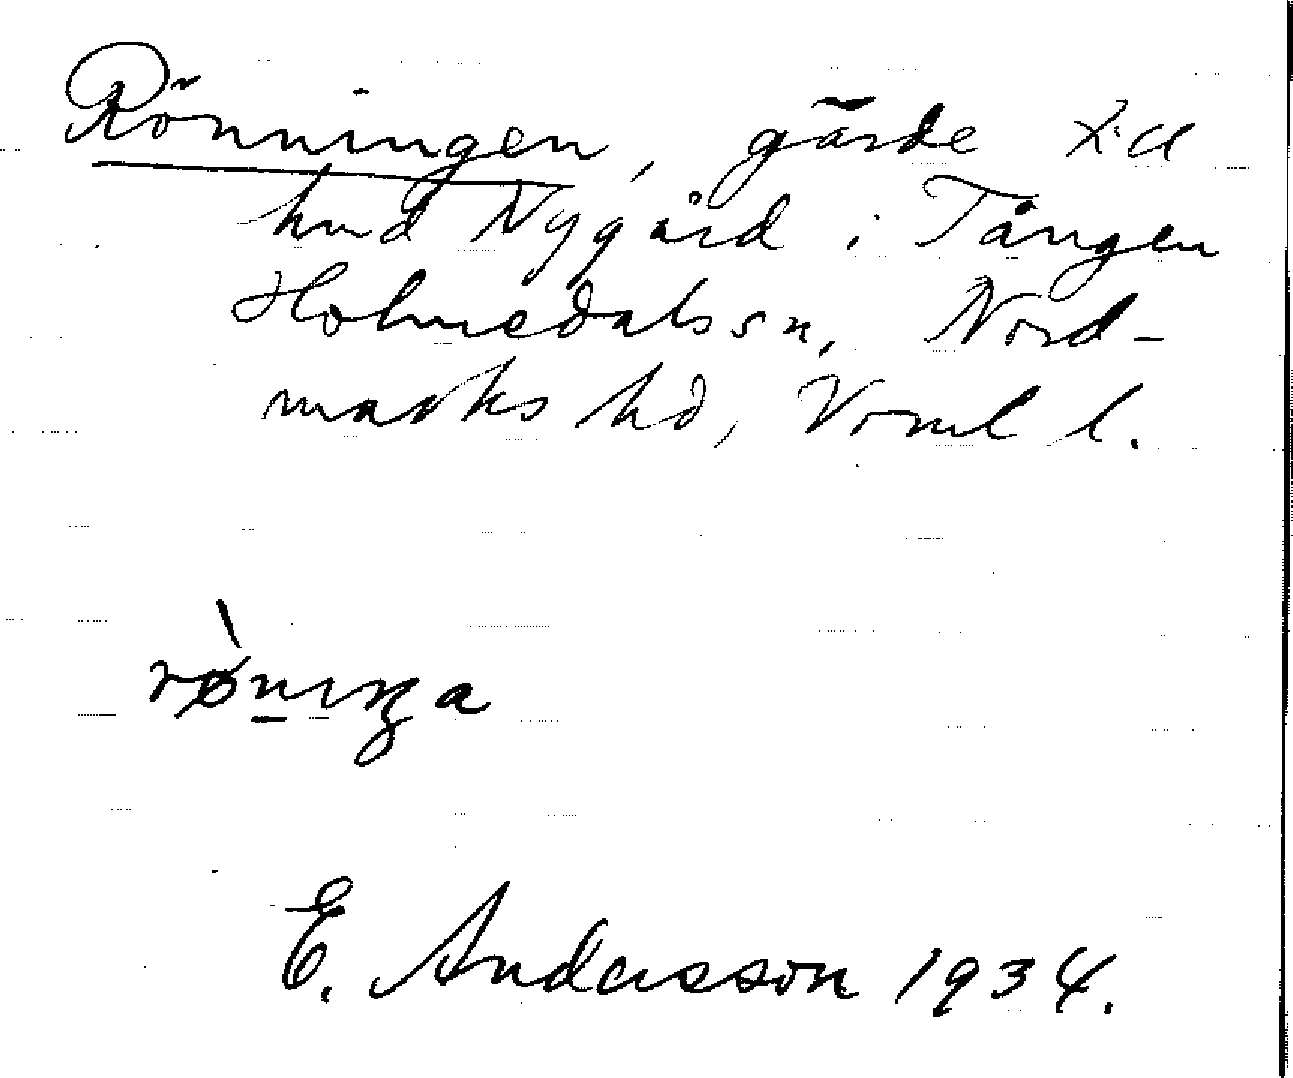 Rönningen, gärde t. cl
hmd Nygård i Tången
Holmedals sn, Nord-
marks hd, Vrml l.
rø̀niŋa
E. Andersson 1934.